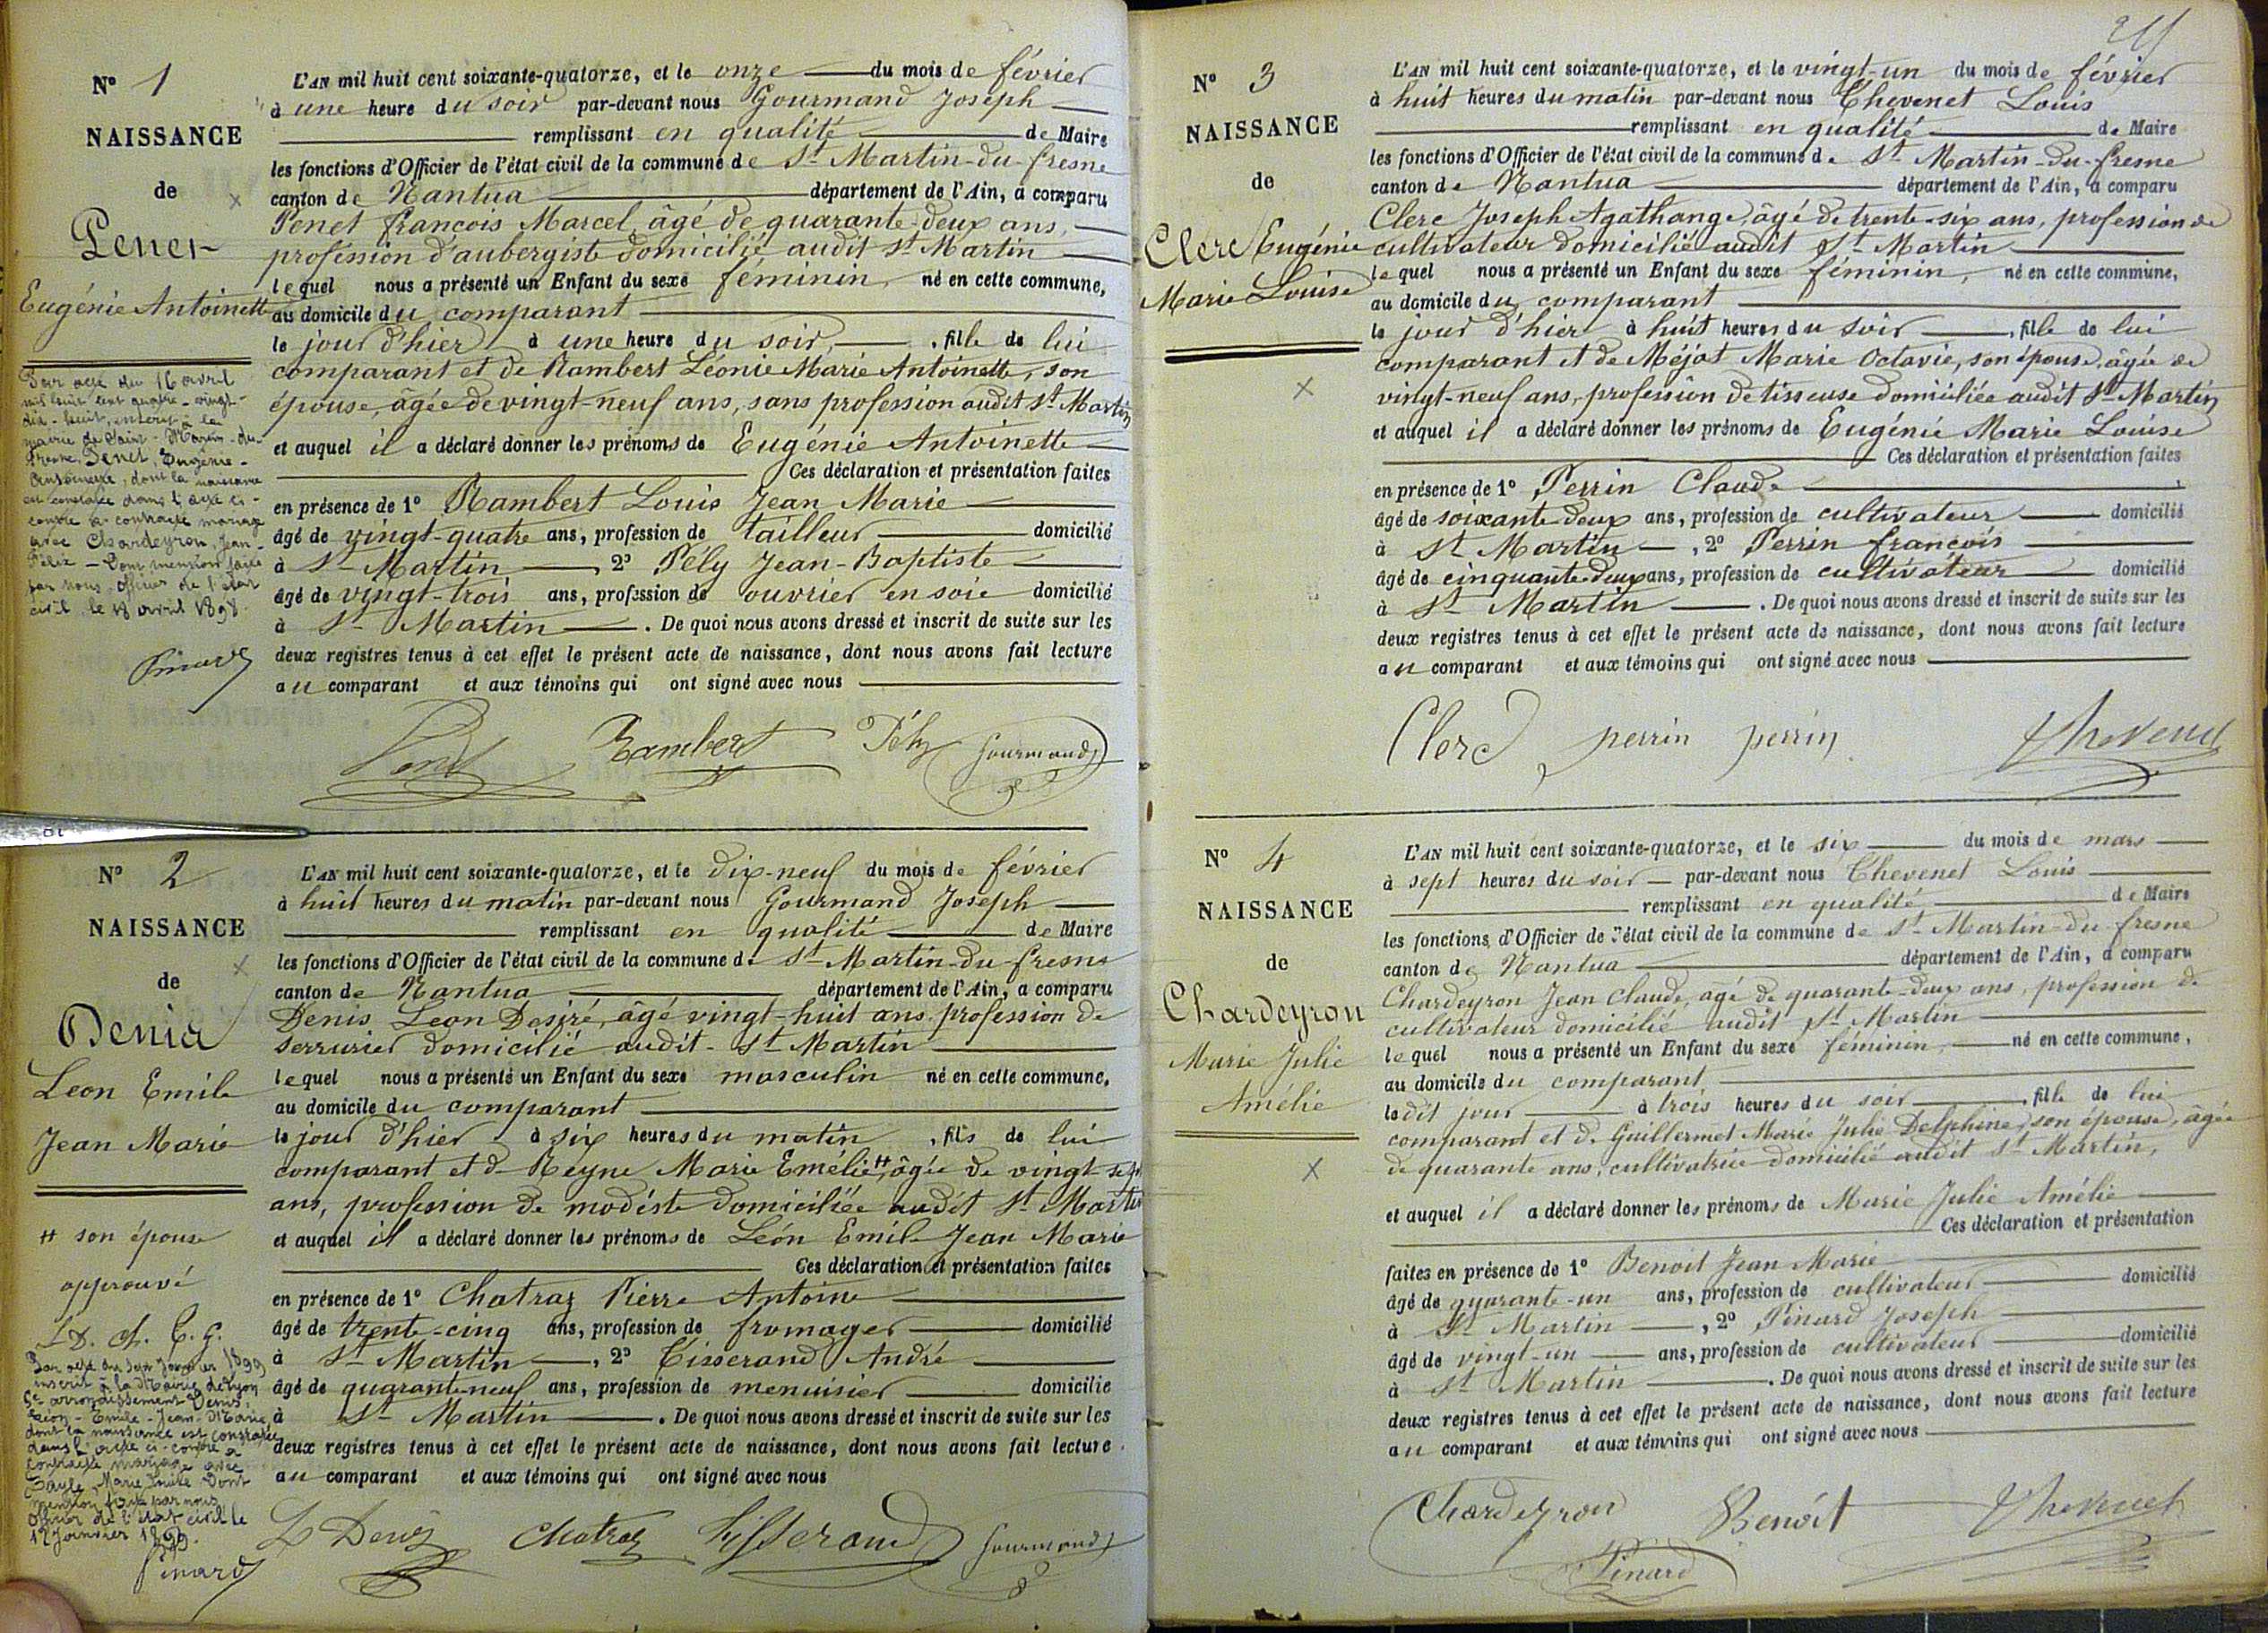 N° 1
NAISSANCE
de
Penet
Eugénie Antoinette
Par acte du 16 avril
mil huit cent quatre-vingt-
dix-huit, inscrit à la
mairie de Saint-Martin-du-
Fresne, Penet, Eugénie-
Antoinette, dont la naissance
est constatée dans l'acte ci-
contre a contracté mariage
avec Chardeyron, Jean-
Félix - Dont mention faite
par nous officier de l'état
civil le 18 avril 1898.
Pinard
L'AN mil huit cent soixante-quatorze, et le onze du mois de février
à une heure du soir par-devant nous Gourmand Joseph
remplissant en qualité de Maire
les fonctions d'Officier de l'état civil de la commune de St Martin-du-fresne
canton de Nantua département de l'Ain, a comparu
Penet françois Marcel, âgé de quarante-deux ans,
profession d'aubergiste domicilié audit St Martin
lequel nous a présenté un Enfant du sexe féminin, né en cette commune,
au domicile du comparant
le jour d'hier à une heure du soir, , fille de lui
comparant et de Rambert Léonie Marie Antoinette, son
épouse, âgée de vingt-neuf ans, sans profession audit St Martin
et auquel il a déclaré donner les prénoms de Eugénie Antoinette
Ces déclaration et présentation faites
en présence de 1° Rambert Louis Jean Marie
âgé de vingt-quatre ans, profession de tailleur domicilié
à St Martin , 2° Pély Jean-Baptiste
âgé de vingt-trois ans, profession de ouvrier en soie domicilié
à St Martin . De quoi nous avons dressé et inscrit de suite sur les
deux registres tenus à cet effet le présent acte de naissance, dont nous avons fait lecture
au comparant et aux témoins qui ont signé avec nous
Penet Rambert Pély Gourmand
N° 2
NAISSANCE
de
Denis
Leon Emile
Jean Marie
# son épouse
approuvé
L D. Ch. T. G.
Par acte du sept Janvier 1899
inscrit à la Mairie de Lyon
5e arrondissement Denis,
Léon-Emile-Jean-Marie,
dont la naissance est constatée
dans l'acte ci-contre a
contracté mariage avec
Bayle Marie Louise Dont
mention faite par nous
officier de l'état civil le
12 Janvier 1899.
Pinard
L'AN mil huit cent soixante-quatorze, et le dix-neuf du mois de février
à huit heures du matin par-devant nous Gourmand Joseph
remplissant en qualité de Maire
les fonctions d'Officier de l'état civil de la commune de St Martin-du-fresne
canton de Nantua département de l'Ain, a comparu
Denis Leon Desiré, âgé vingt-huit ans profession de
serrurier domicilié audit St Martin
lequel nous a présenté un Enfant du sexe masculin né en cette commune,
au domicile du comparant
le jour d'hier à six heures du matin , fils de lui
comparant et de Reyne Marie Emélie # âgée de vingt-sept
ans, profession de modiste domiciliée audit St Martin
et auquel il a déclaré donner les prénoms de Léon Emile Jean Marie
Ces déclaration et présentation faites
en présence de 1° Chatraz Pierre Antoine
âgé de trente-cinq ans, profession de fromager domicilié
à St Martin , 2° Tisserand André
âgé de quarante-neuf ans, profession de menuisier domicilié
à St Martin . De quoi nous avons dressé et inscrit de suite sur les
deux registres tenus à cet effet le présent acte de naissance, dont nous avons fait lecture
au comparant et aux témoins qui ont signé avec nous
L Denis Chatraz Tisserand Gourmand
N° 3
NAISSANCE
de
Clerc Eugénie
Marie Louise
L'AN mil huit cent soixante-quatorze, et le vingt-un du mois de février
à huit heures du matin par-devant nous Thevenet Louis
remplissant en qualité de Maire
les fonctions d'Officier de l'état civil de la commune de St Martin-du-fresne
canton de Nantua département de l'Ain, a comparu
Clerc Joseph Agathange, âgé de trente-six ans, profession de
cultivateur domicilié audit St Martin
lequel nous a présenté un Enfant du sexe féminin, né en cette commune,
au domicile du comparant
le jour d'hier à huit heures du soir , fille de lui
comparant et de Méjat Marie Octavie, son épouse, âgée de
vingt-neuf ans, profession de tisseuse domiciliée audit St Martin
et auquel il a déclaré donner les prénoms de Eugénie Marie Louise
Ces déclaration et présentation faites
en présence de 1° Perrin Claude
âgé de soixante-deux ans, profession de cultivateur domicilié
à St Martin , 2° Perrin françois
âgé de cinquante-deux ans, profession de cultivateur domicilié
à St Martin . De quoi nous avons dressé et inscrit de suite sur les
deux registres tenus à cet effet le présent acte de naissance, dont nous avons fait lecture
au comparant et aux témoins qui ont signé avec nous
Clerc perrin perrin Thevenet
N° 4
NAISSANCE
de
Chardeyron
Marie Julie
Amélie
L'AN mil huit cent soixante-quatorze, et le six du mois de mars
à sept heures du soir par-devant nous Thevenet Louis
remplissant en qualité de Maire
les fonctions d'Officier de l'état civil de la commune de St Martin-du-fresne
canton de Nantua département de l'Ain, a comparu
Chardeyron Jean Claude, âgé de quarante-deux ans, profession de
cultivateur domicilié audit St Martin
lequel nous a présenté un Enfant du sexe féminin, né en cette commune,
au domicile du comparant
ledit jour à trois heures du soir , fille de lui
comparant et de Guillermet Marie Julie Delphine, son épouse, âgée
de quarante ans, cultivatrice domicilié audit St Martin,
et auquel il a déclaré donner les prénoms de Marie Julie Amélie
Ces déclaration et présentation
faites en présence de 1° Benoit Jean Marie
âgé de quarante-un ans, profession de cultivateur domicilié
à St Martin , 2° Pinard Joseph
âgé de vingt-un ans, profession de cultivateur domicilié
à St Martin . De quoi nous avons dressé et inscrit de suite sur les
deux registres tenus à cet effet le présent acte de naissance, dont nous avons fait lecture
au comparant et aux témoins qui ont signé avec nous
Chardeyron Benoît Thevenet
Pinard